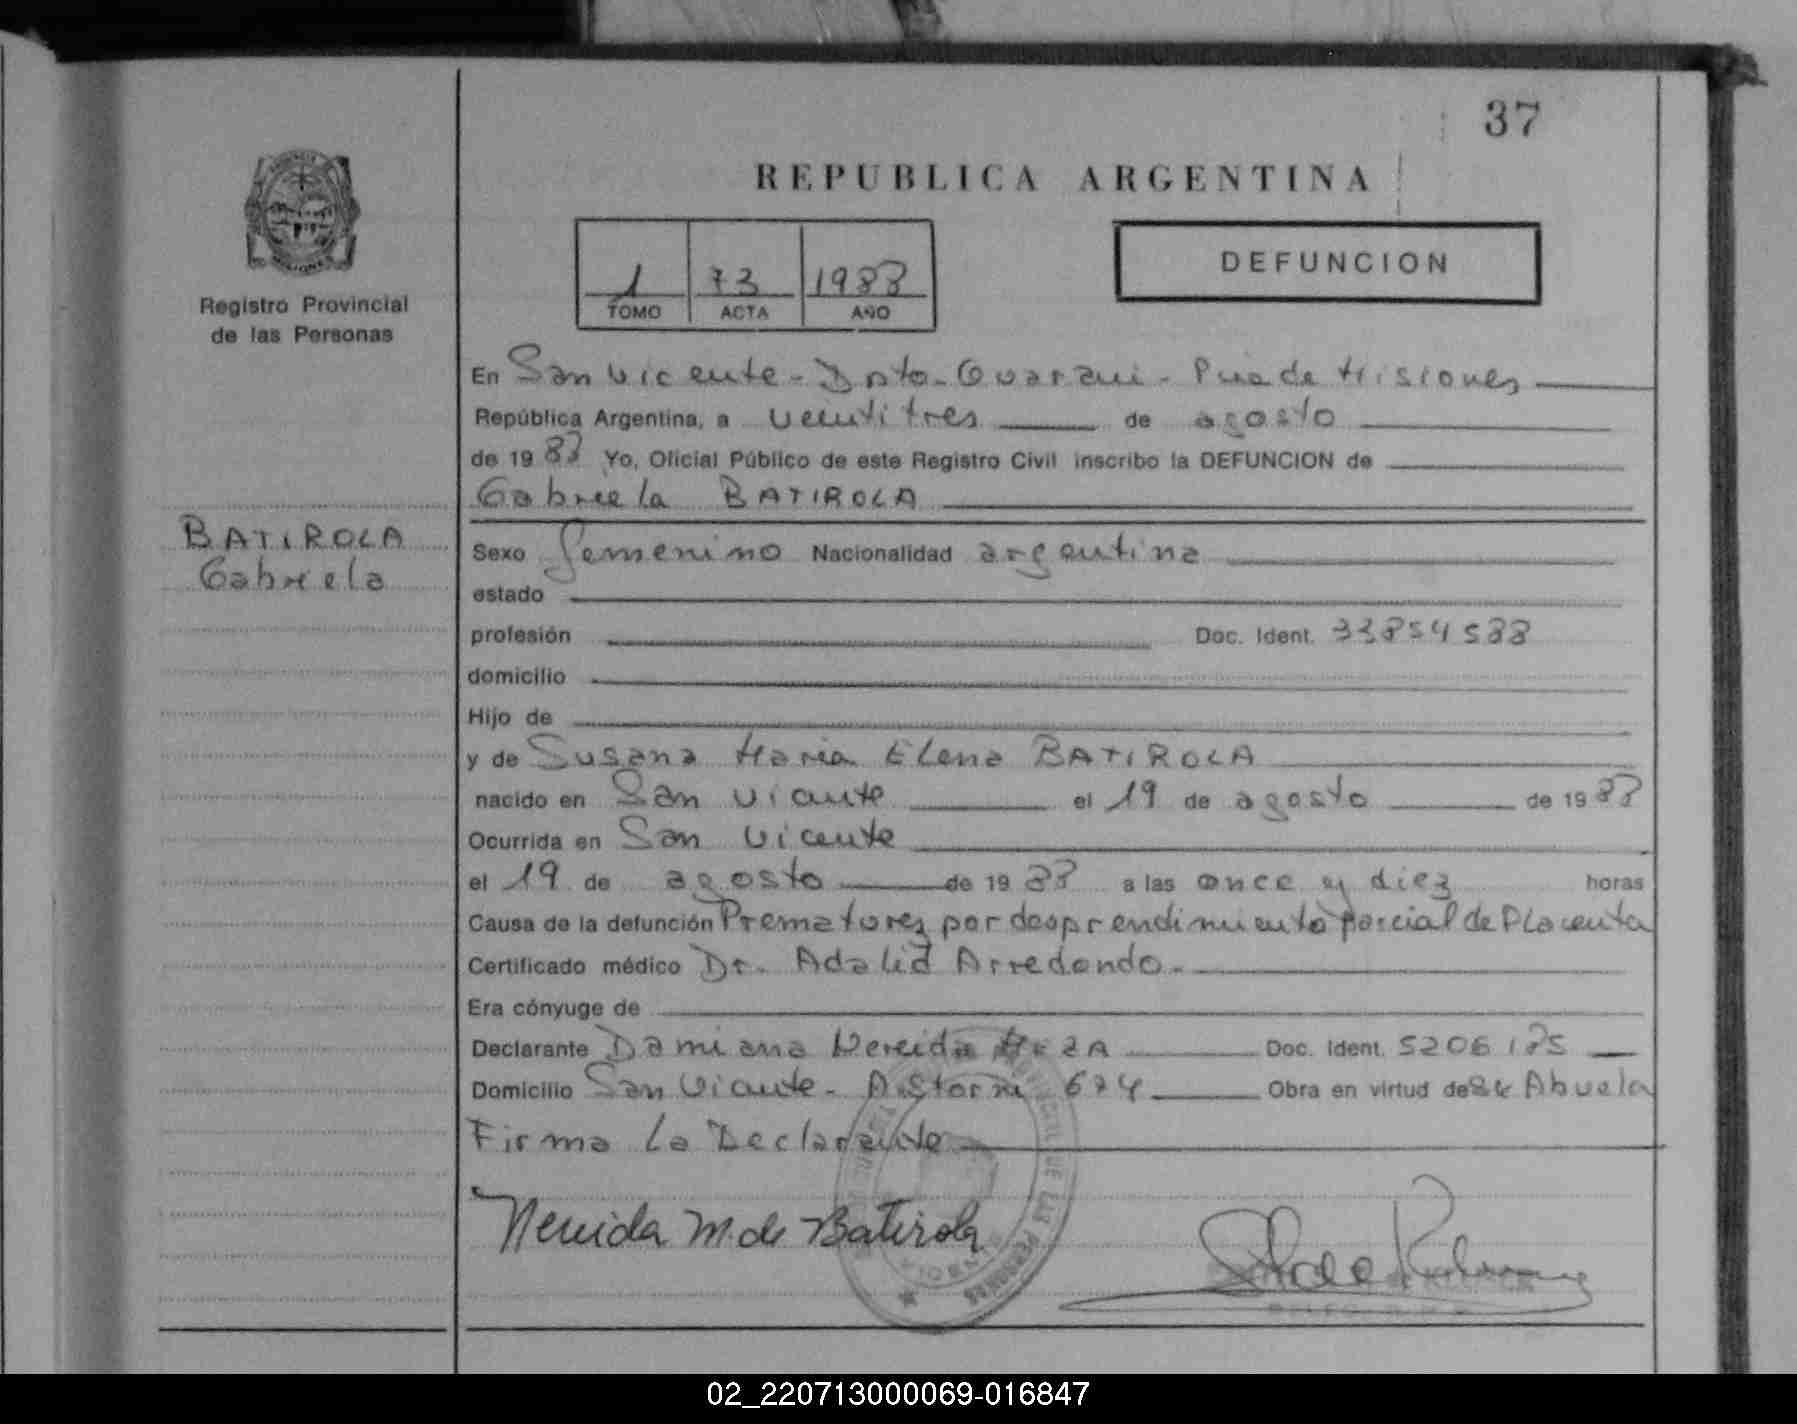 37
REPUBLICA ARGENTINA
Registro Provincial
de las Personas
1 73 1988
TOMO ACTA AÑO
DEFUNCION
En San Vicente - Dpto. Guarani - Pcia de Misiones
República Argentina, a veintitres de agosto
de 19 88 Yo, Oficial Público de este Registro Civil inscribo la DEFUNCION de
Gabriela BATIROLA
BATIROLA
Gabriela
Sexo femenino Nacionalidad argentina
estado
profesión Doc. Ident. 33854588
domicilio
Hijo de
y de Susana Maria Elena BATIROLA
nacido en San Vicente el 19 de agosto de 19 88
Ocurrida en San Vicente
el 19 de agosto de 19 88 a las once y diez horas
Causa de la defunción Prematurez por desprendimiento parcial de Placenta
Certificado médico Dr. Adalid Arredondo.
Era cónyuge de
Declarante Damiana Nereida Doc. Ident. 5206185
Domicilio San Vicente - A. Storni 674 Obra en virtud de Abuela
Firma La Declarante
Nereida M. de Batirola
02_220713000069-016847